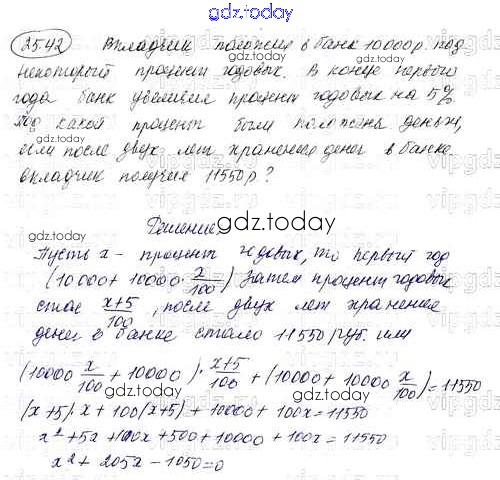 gdz.today
25.42 Вкладчик положил в банк 10000р. под
некоторый процент годовых. В конце первого
года банк увеличил процент годовых на 5%
Под какой процент были положены деньги,
если после двух лет хранения денег в банке
вкладчик получил 11550р?
Решение
gdz.today
Пусть x - процент годовых, то первый год
(10000 + 10000·x/100) Затем процент годовых
стал x+5/100, после двух лет хранения
денег в банке стало 11550 руб. или
(10000 x/100 + 10000)·x+5/100 + (10000 + 10000 x/100) = 11550
(x+5)·x + 100(x+5) + 10000 + 100x = 11550
x² + 5x + 100x + 500 + 10000 + 100x = 11550
x² + 205x - 1050 = 0
gdz.today